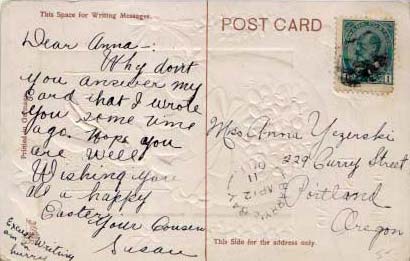 This Space for Writing Messages.
POST CARD
Dear Anna-:
Why don't
you answer my
card that I wrote
you some time
ago. Hope you
are well
Wishing you
all a happy
Easter
Your Cousin
Susan
Excuse Writing
am in
hurry
Printed in Germany
1
AP 12
11
Miss Anna Yezerski
229 Curry Street
Portland
Oregon
This Side for the address only.